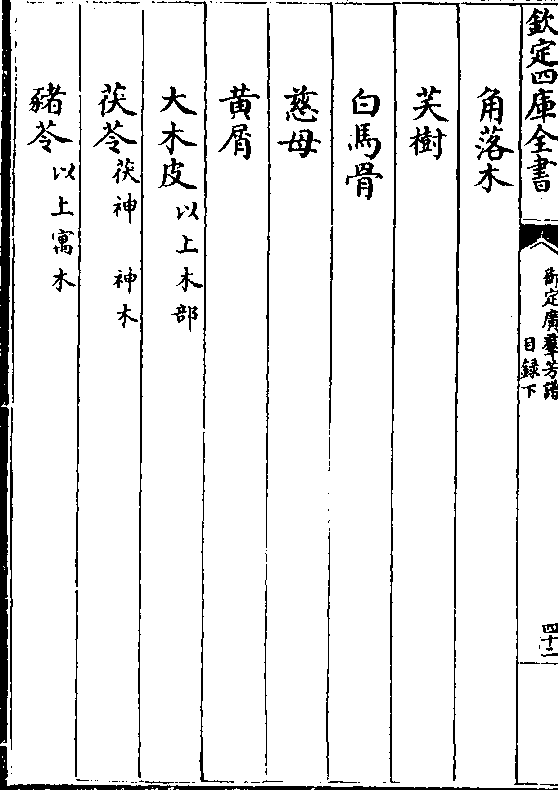 欽定四庫全書
御定廣羣芳譜
目録下
四十二
角落木
芙樹
白馬骨
慈母
黄屑
大木皮以上木部
茯苓茯神 神木
豬苓以上寓木